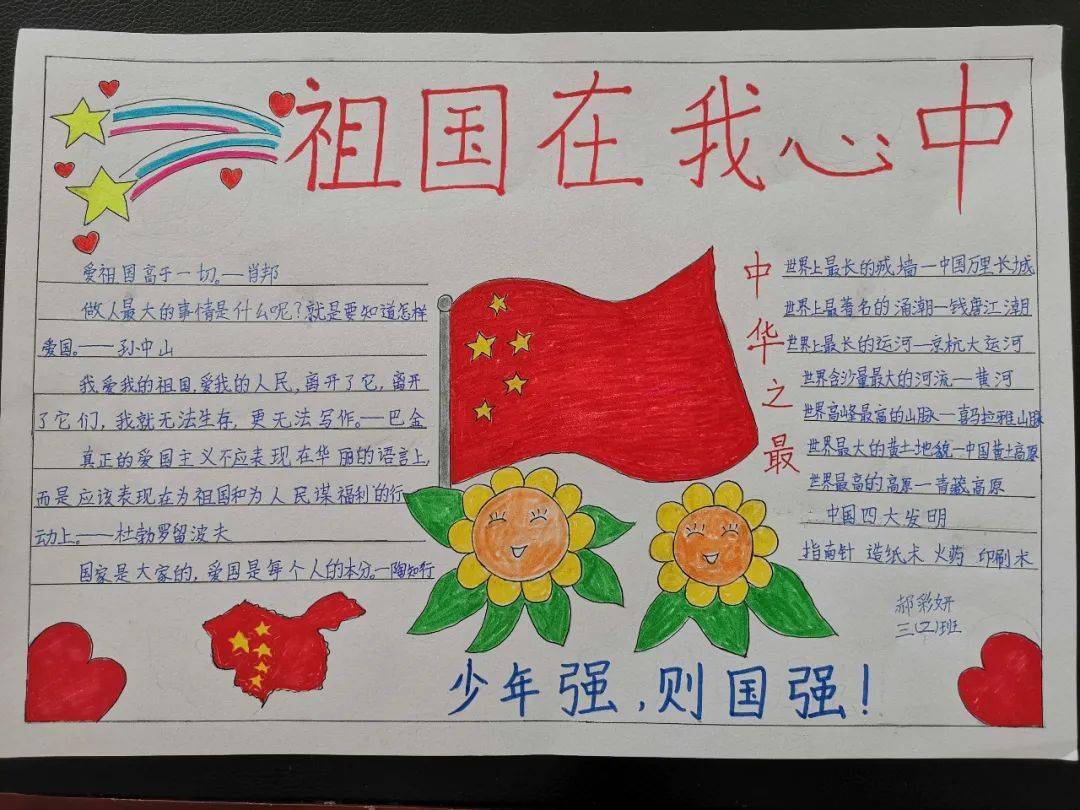 祖国在我心中
爱祖国高于一切。—肖邦
做人最大的事情是什么呢?就是要知道怎样
爱国。——孙中山
我爱我的祖国,爱我的人民,离开了它,离开
了它们,我就无法生存,更无法写作。—巴金
真正的爱国主义不应表现在华丽的语言上,
而是应该表现在为祖国和为人民谋福利的行
动上。——杜勃罗留波夫
国家是大家的,爱国是每个人的本分。—陶知行
中华之最
世界上最长的城墙—中国万里长城
世界上最著名的涌潮—钱唐江潮
世界上最长的运河—京杭大运河
世界含沙量最大的河流—黄河
世界高峰最高的山脉—喜马拉雅山脉
世界最大的黄土地貌—中国黄土高原
世界最高的高原—青藏高原
中国四大发明
指南针 造纸术 火药 印刷术
郝彩妍
三(2)班
少年强,则国强!